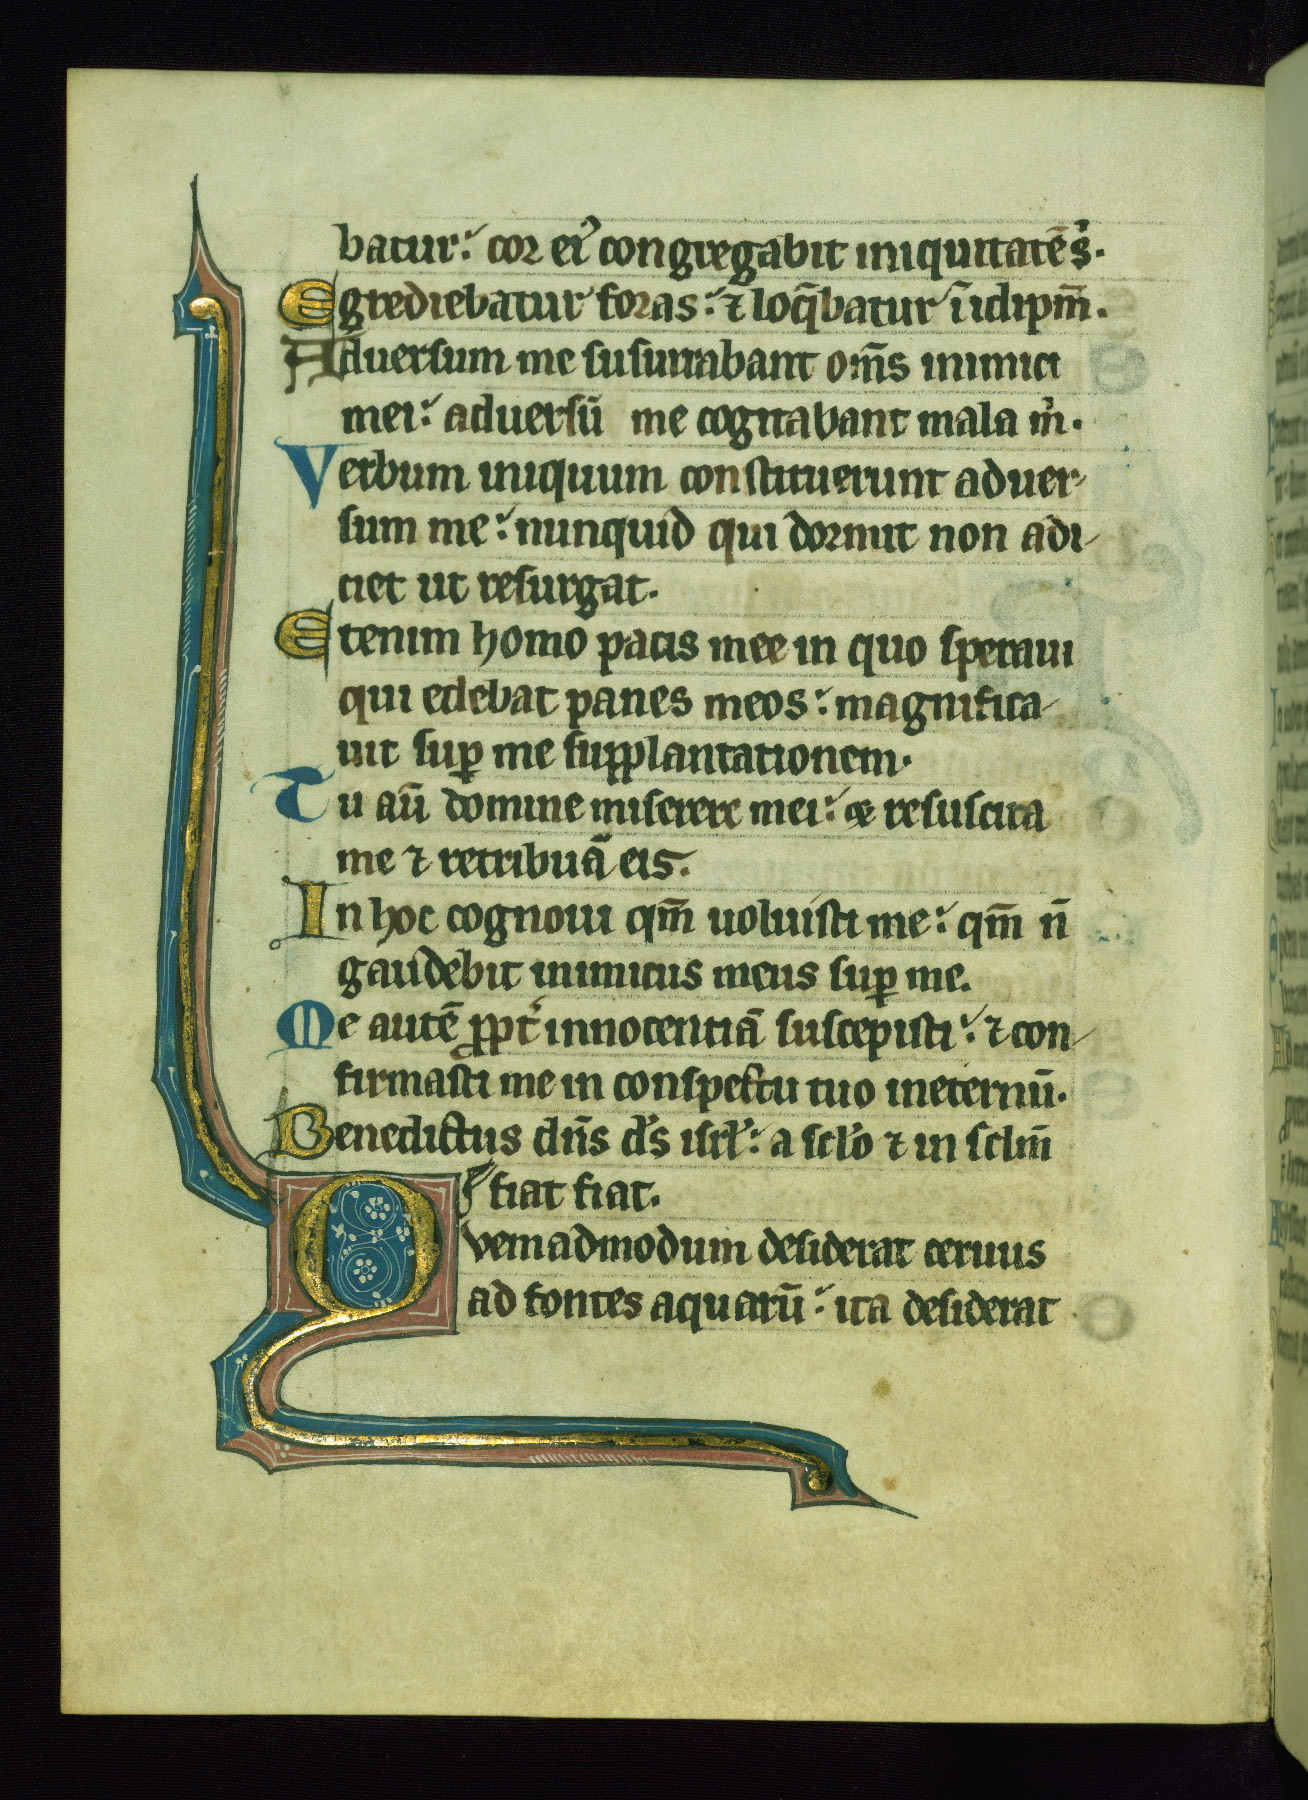 batur: cor ei⁹ congregabit iniquitatē s̉.
Egrediebatur foras: ⁊ loq̄batur ī idip̄m.
Aduersum me susurrabant om̄s inimici
mei: aduersū me cogitabant mala m̉.
Verbum iniquum constituerunt aduer-
sum me: nunquid qui dormit non adi-
ciet ut resurgat.
Etenim homo pacis mee in quo speraui
qui edebat panes meos: magnifica-
uit suꝑ me supplantationem.
Tu aū domine miserere mei: & resuscita
me ⁊ retribuā eis.
In hoc cognoui qm̄ uoluisti me: qm̄ n̄
gaudebit inimicus meus suꝑ me.
Me autē ꝓpt̉ innocentiā suscepisti: ⁊ con-
firmasti me in conspectu tuo ineternū.
Benedictus dn̄s d̉s isrl̉: a scl̉o ⁊ in sclm̄
fiat fiat.
Qvemadmodum desiderat ceruus
ad fontes aquarū: ita desiderat